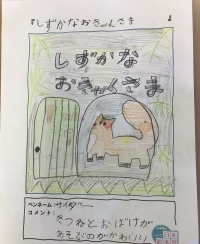 『しずかなおきゃくさま 』
しずかな
おきゃくさま
ペンネーム
コメント:
きつねとおばけが
あそぶのがかわいい